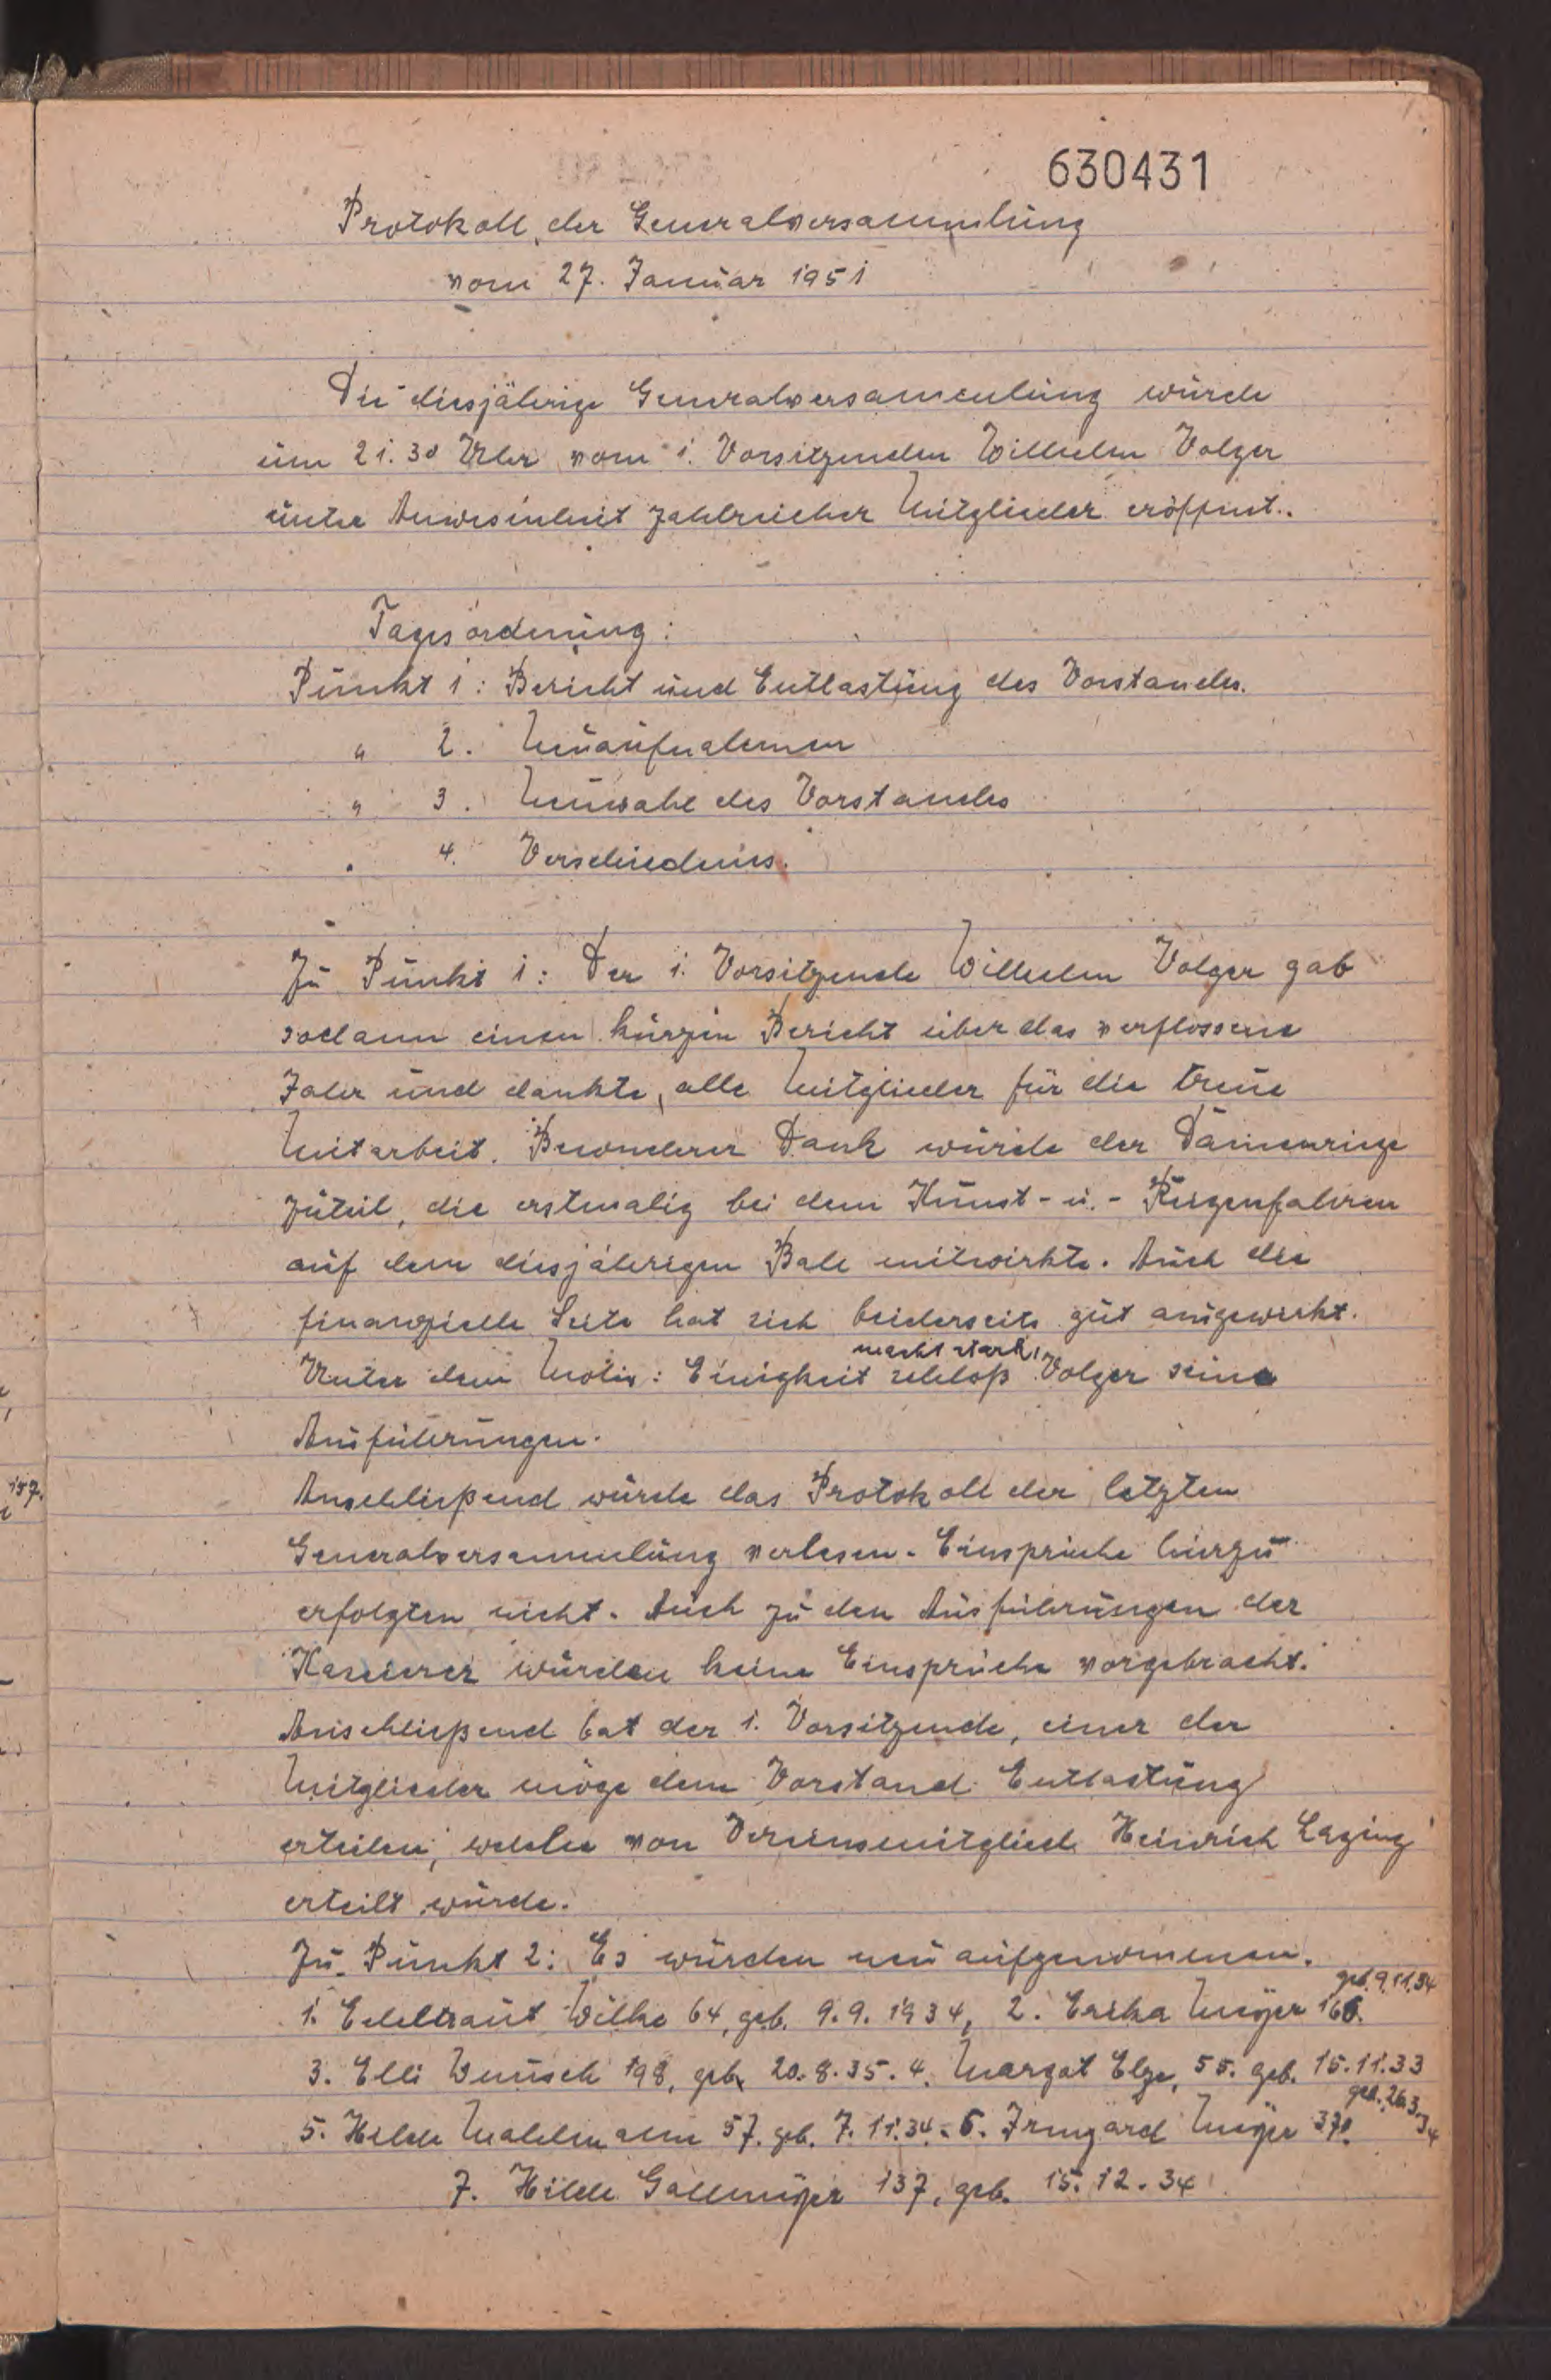 630431
Protokoll der Generalversammlung
vom 27. Januar 1951
Die diesjährige Generalversammlung wurde
um 21.30 Uhr vom 1. Vorsitzenden Wilhelm Volger
unter Anwesenheit zahlreicher Mitglieder eröffnet.
Tagesordnung:
Punkt 1: Bericht und Entlastung des Vorstandes.
" 2. Neuaufnahmen
" 3. Neuwahl des Vorstandes
" 4. Verschiedenes.
Zu Punkt 1: Der 1. Vorsitzende Wilhelm Volger gab
sodann einen kurzen Bericht über das verflossene
Jahr und dankte, alle Mitglieder für die treue
Mitarbeit. Besonderer Dank wurde der Damenriege
zuteil, die erstmalig bei dem Kunst- u.- Reigenfahren
auf dem diesjährigen Ball mitwirkte. Auch die
finanzielle Seite hat sich beiderseits gut ausgewirkt.
macht stark!
Unter dem Motiv: Einigkeit schloß Volger seine
Ausführungen.
Anschließend wurde das Protokoll der letzten
Generalversammlung verlesen. Einsprüche hierzu
erfolgten nicht. Auch zu den Ausführungen der
Kassierer wurden keine Einsprüche vorgebracht.
Anschließend bat der 1. Vorsitzende, einer der
Mitglieder möge dem Vorstand Entlastung
erteilen, welche von Vereinsmitglied Heinrich
erteilt wurde.
Zu Punkt 2: Es wurden neu aufgenommen.
geb. 9.11.34
1. Edeltraut Wilke 64, geb. 9.9.1934, 2. Erika Meyer 166.
3. Elli Wunsch 198, geb. 20.8.35. 4. Margot Elze, 55. geb. 15.11.33
geb. 26.3.34
5. Hilde Mahlmann 57. geb. 7.11.34. 6. Irmgard Meyer 370.
7. Hilde Gallmeyer 137, geb. 15.12.34
157.